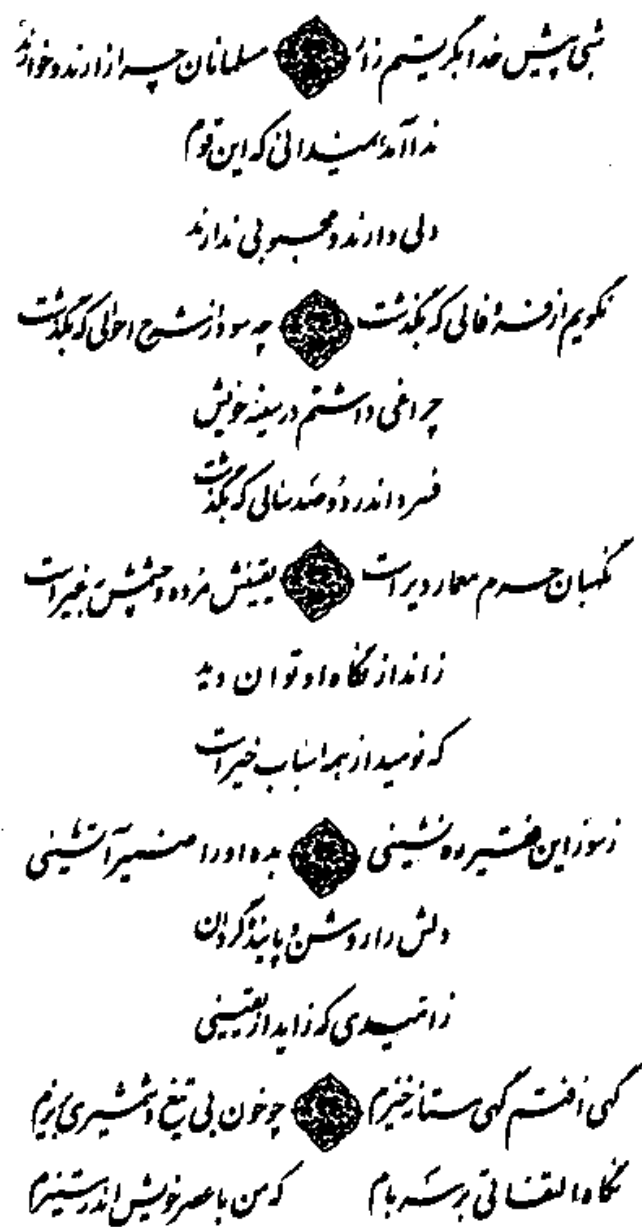 شبی پیش خدا بگریستم زار مسلمانان چرا زارند و خوارند
ندا آمد، نمیدانی که این قوم
دلی دارند و محبوبی ندارند
نگویم از فر و فالی که بگذشت چه سود از شرح احوالی که بگذشت
چراغی داشتم در سینهٔ خویش
فسرد اندر دو صد سالی که بگذشت
نگهبان حرم معمار دیر است یقینش مرده و چشمش بغیر است
ز انداز نگاه او توان دید
که نومید از همه اسباب خیر است
ز سوز این فقیر ره نشینی بده او را ضمیر آتشینی
دلش را روشن و پاینده گردان
ز امیدی که زاید از یقینی
گهی افتم گهی مستانه خیزم چو خون بی تیغ و شمشیری بریزم
نگاه التفاتی بر سر بام که من با عصر خویش اندر ستیزم